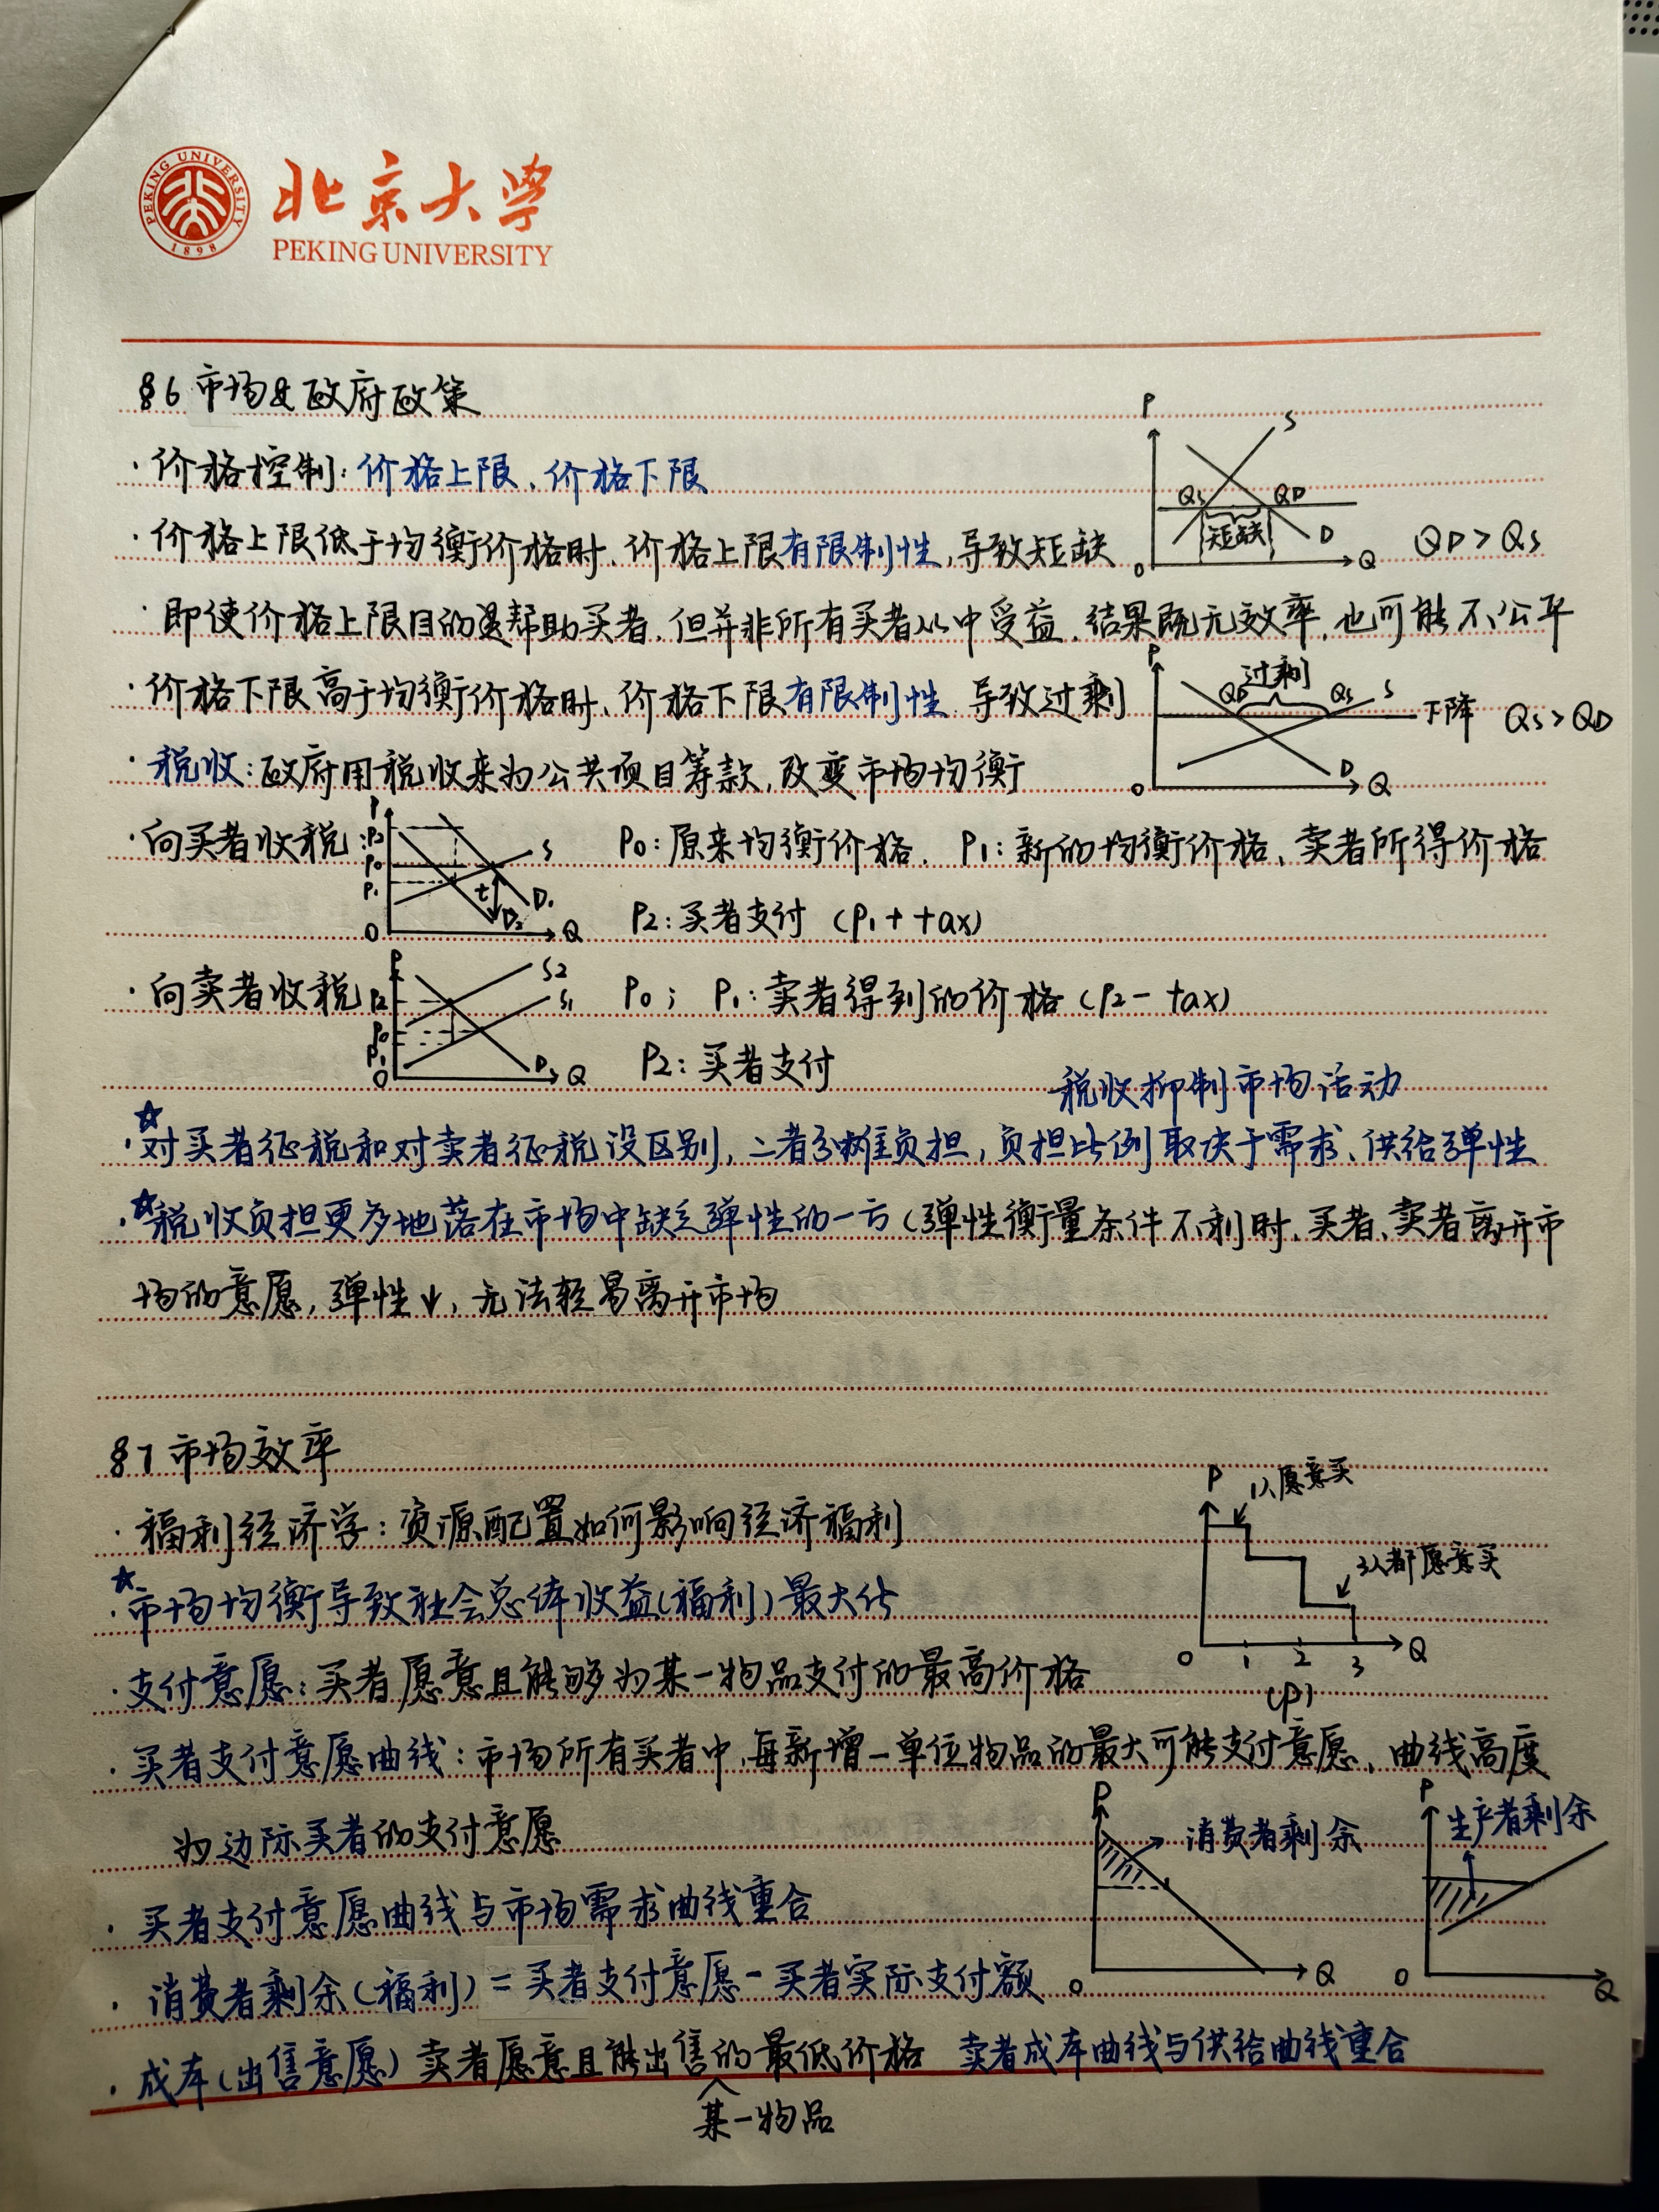 PEKING UNIVERSITY
1898
北京大学
PEKING UNIVERSITY
§6 市场&政府政策
·价格控制:价格上限、价格下限
·价格上限低于均衡价格时、价格上限有限制性,导致短缺
P
S
QS
QD
短缺
D
O
Q
QD > QS
·即使价格上限目的是帮助买者,但并非所有买者从中受益,结果既无效率,也可能不公平
·价格下限高于均衡价格时、价格下限有限制性 导致过剩
P
过剩
QD
QS
S
下降
QS > QD
D
O
Q
·税收:政府用税收来为公共项目筹款,改变市场均衡
·向买者收税
P
P2
P0
P1
S
t
D1
D2
O
Q
P0:原来均衡价格、P1:新的均衡价格、卖者所得价格
P2:买者支付 (P1 + tax)
·向卖者收税
P
P2
P0
P1
S2
S1
D
O
Q
P0; P1:卖者得到的价格(P2 - tax)
P2:买者支付
税收抑制市场活动
☆
·对买者征税和对卖者征税没区别,二者分摊负担,负担比例取决于需求、供给弹性
☆
·税收负担更多地落在市场中缺乏弹性的一方(弹性衡量条件不利时、买者、卖者离开市
场的意愿,弹性↓,无法轻易离开市场
§7 市场效率
·福利经济学:资源配置如何影响经济福利
☆
·市场均衡导致社会总体收益(福利)最大化
P
1人愿意买
3人都愿意买
O
1
2
3
Q
(P)
·支付意愿:买者愿意且能够为某一物品支付的最高价格
·买者支付意愿曲线:市场所有买者中,每新增一单位物品的最大可能支付意愿、曲线高度
为边际买者的支付意愿
P
消费者剩余
O
Q
P
生产者剩余
O
Q
·买者支付意愿曲线与市场需求曲线重合
·消费者剩余(福利)=买者支付意愿-买者实际支付额
·成本(出售意愿)卖者愿意且能出售的最低价格 卖者成本曲线与供给曲线重合
某一物品